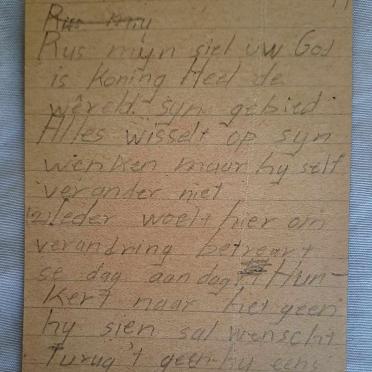 Rus mijn
Rus myn siel uw God
is Koning Heel de
wêreld syn gebied
Alles wisselt op syn
wenken maar hy self
verander niet
Ieder woelt hier om
verandring betreart
se dag aan dag Hun-
kert naar het geen
hy sien sal wenscht
Turug 't geen hy eens